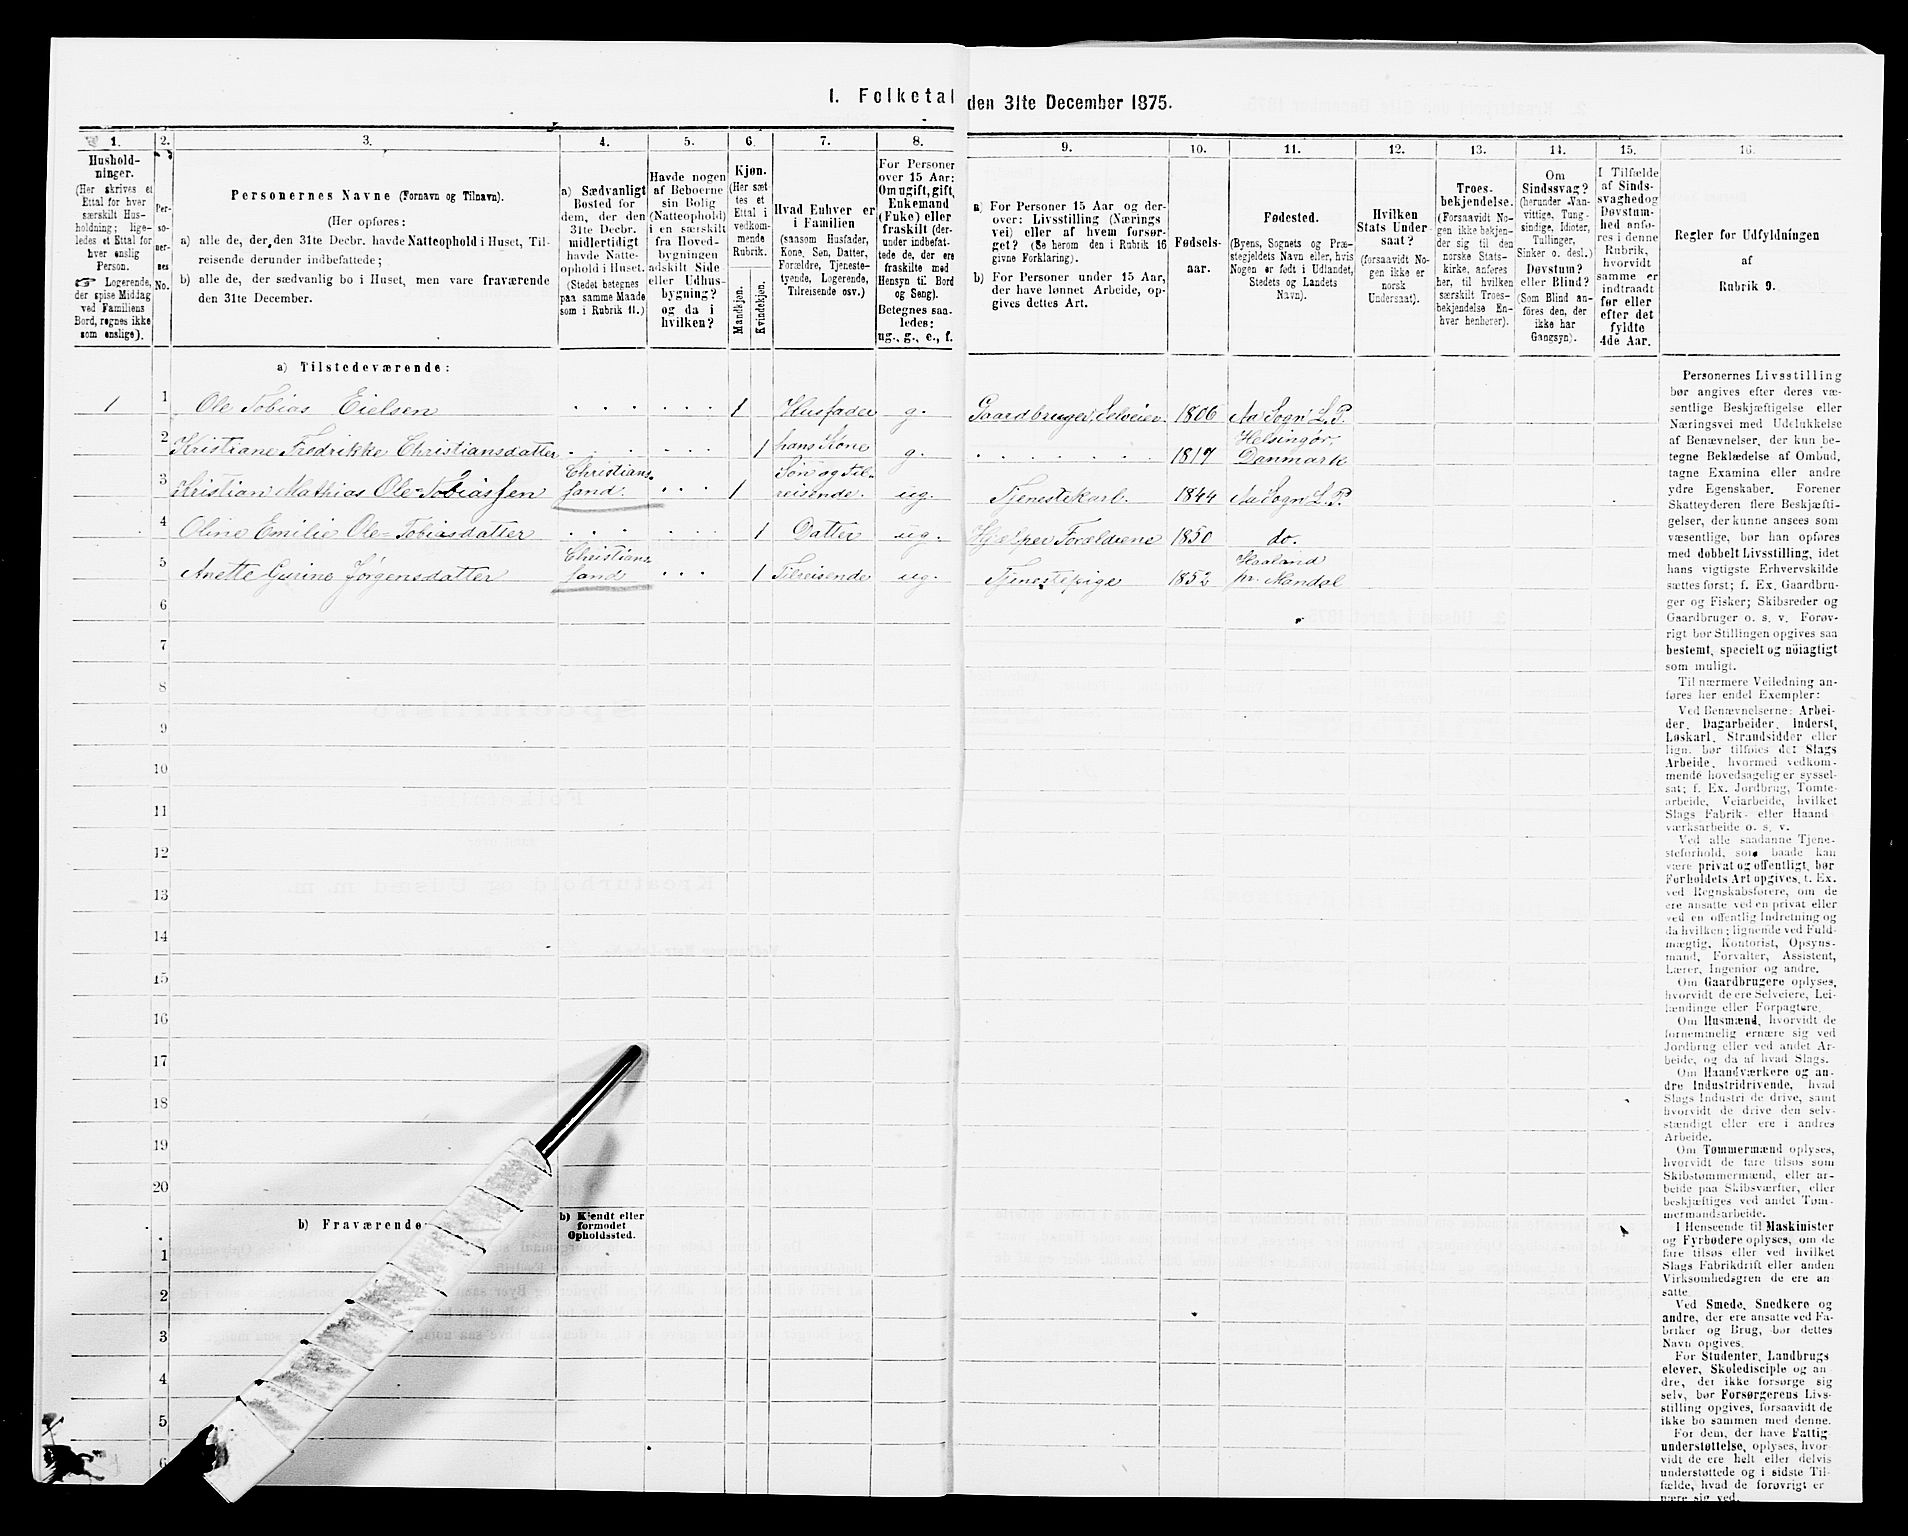 I. Folketal den 31te December 1875.
1. 2. 3. 4. 5. 6. 7. 8. 9. 10. 11. 12. 13. 14. 15. 16.
Hushold-
ninger.
(Her skrives et
Ettal for hver
særskilt Hus-
holdning; lige-
ledes et Ettal for
hver enslig
Person.
☞ Logerende,
der spise Middag
ved Familiens
Bord, regnes ikke
som enslige).
Per-
so-
ner-
nes
No.
Personernes Navne (Fornavn og Tilnavn).
(Her opføres:
a) alle de, der den 31te Decbr. havde Natteophold i Huset, Til-
reisende derunder indbefattede;
b) alle de, der sædvanlig bo i Huset, men vare fraværende
den 31te December.
a) Sædvanligt
Bosted for
dem, der den
31te Decbr.
midlertidigt
havde Natte-
ophold i Huset.
(Stedet betegnes
paa samme Maade
som i Rubrik 11.)
Havde nogen
af Beboerne
sin Bolig
(Natteophold)
i en særskilt
fra Hoved-
bygningen
adskilt Side-
eller Udhus-
bygning?
og da i
hvilken?
Kjøn.
(Her sæt-
tes et
Ettal i
vedkom-
mende
Rubrik.
Mandkjøn.
Kvindekjøn.
Hvad Enhver er
i Familien
(saasom Husfader,
Kone, Søn, Datter,
Forældre, Tjeneste-
tyende, Logerende,
Tilreisende osv.)
For Personer
over 15 Aar:
Om ugift, gift,
Enkemand
(Enke) eller
fraskilt (der-
under indbefat-
tede de, der ere
fraskilte med
Hensyn til Bord
og Seng).
Betegnes saa-
ledes:
ug., g., e., f.
a) For Personer 15 Aar og der-
over: Livsstilling (Nærings
vei) eller af hvem forsør-
get? (Se herom den i Rubrik 16
givne Forklaring).
b) For Personer under 15 Aar,
der have lønnet Arbeide, op-
gives dettes Art.
Fødsels-
aar.
Fødested.
(Byens, Sognets og Præ-
stegjeldets Navn eller, hvis
Nogen er født i Udlandet,
Stedets og Landets
Navn).
Hvilken
Stats Under-
saat?
(forsaavidt No-
gen ikke er
norsk
Undersaat).
Troes-
bekjendelse.
(Forsaavidt No-
gen ikke bekjen-
der sig til den
norske Stats-
kirke, anføres
her, til hvilken
særskilt Troes-
bekjendelse En-
hver henhører).
Om
Sindssvag?
(herunder Van-
vittige, Tung-
sindige, Idioter,
Tullinger,
Sinker o. desl.)
Døvstum?
eller Blind?
(Som Blind an-
føres den, der
ikke har
Gangsyn).
I Tilfælde
af Sinds-
svaghed og
Døvstum-
hed anfø-
res i denne
Rubrik,
hvorvidt
samme er
indtraadt
før eller
efter det
fyldte
4de Aar.
Regler for Udfyldningen
af
Rubrik 9.
a) Tilstedeværende:
1 1 Ole Tobias Eielsen 1 Husfader g. Gaardbruger, Selveier 1806 Aa Sogn L. P.
2 Kristiane Fredrikke Christiansdatter 1 hans Kone g. 1817 Helsingør, Danmark
3 Kristian Mathias Ole-Tobiassen Christians-
sand. 1 Søn og Til-
reisende. ug. Tjenestekarl. 1844 Aa Sogn L. P.
4 Oline Emilie Ole-Tobiasdatter 1 Datter ug. Hjælper Forældrene 1850 do.
5 Anette Gurine Jørgensdatter Christians-
sand 1 Tilreisende ug. Tjenestepige 1852 Haaland
pr. Mandal
6
7
8
9
10
11
12
13
14
15
16
17
18
19
20
b) Fraværende
b) Kjendt eller
formodet
Opholdssted.
1
2
3
4
5
6
Personernes Livsstilling
bør angives efter deres væ-
sentlige Beskjæftigelse eller
Næringsvei med Udelukkelse
af Benævnelser, der kun be-
tegne Beklædelse af Ombud,
tagne Examina eller andre
ydre Egenskaber. Forener
Skatteyderen flere Beskjæfti-
gelser, der kunne ansees som
væsentlige, bør han opføres
med dobbelt Livsstilling, idet
hans vigtigste Erhvervskilde
sættes først; f. Ex. Gaardbru-
ger og Fisker; Skibsreder og
Gaardbruger o. s. v. Forøv-
rigt bør Stillingen opgives saa
bestemt, specielt og nøiagtigt
som muligt.
Til nærmere Veiledning an-
føres her endel Exempler:
Ved Benævnelserne: Arbei-
der, Dagarbeider, Inderst,
Løskarl, Strandsidder eller
lign. bør tilføies det Slags
Arbeide, hvormed vedkom-
mende hovedsagelig er syssel-
sat; f. Ex. Jordbrug, Tomte-
arbeide, Veiarbeide, hvilket
Slags Fabrik- eller Haand
værksarbeide o. s. v.
Ved alle saadanne Tjene-
steforhold, som baade kan
være privat og offentligt, bør
Forholdets Art opgives, t. Ex.
ved Regnskabsførere, om de
ere ansatte ved en privat eller
ved en offentlig Indretning og
da hvilken; lignende ved Fuld-
mægtig, Kontorist, Opsyns-
mand, Forvalter, Assistent,
Lærer, Ingeniør og andre.
Om Gaardbrugere oplyses,
hvorvidt de ere Selveiere, Lei-
lændinge eller Forpagtere.
Om Husmænd, hvorvidt de
fornemmelig ernære sig ved
Jordbrug eller ved andet Ar-
beide, og da af hvad Slags.
Om Haandværkere og an-
dre Industridrivende, hvad
Slags Industri de drive, samt
hvorvidt de drive den selv-
stændigt eller ere i andres
Arbeide.
Om Tømmermænd oplyses,
hvorvidt de fare tilsøs som
Skibstømmermænd, eller ar-
beide paa Skibsværfter, eller
beskjæftiges ved andet Tøm-
mermandsarbeide.
I Henseende til Maskinister
og Fyrbødere oplyses, om de
fare tilsøs eller ved hvilket
Slags Fabrikdrift eller anden
Virksomhedsgren de ere an
satte.
Ved Smede, Snedkere og
andre, der ere ansatte ved Fa-
briker og Brug, bør dettes
Navn opgives.
For Studenter, Landbrugs
elever, Skoledisciple og an
dre, der ikke forsørge sig
selv, bør Forsørgerens Livs-
stilling opgives, forsaavidt de
ikke bo sammen med denne.
For dem, der have Fattig
understøttelse, oplyses, hvor
vidt de ere helt eller delvis
understøttede og i sidste Til-
fælde, hvad de forøvrigt er
nære sig ved.